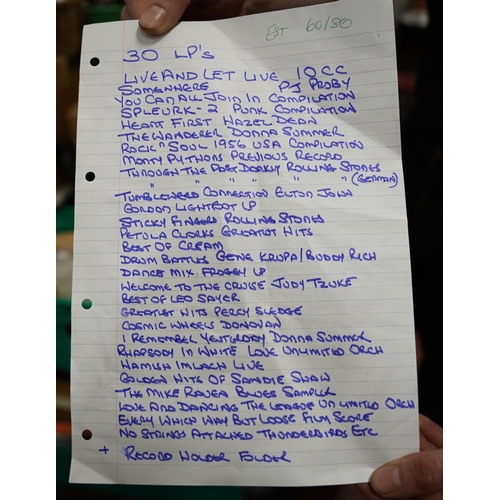 EST 60/80
30 LP's
LIVE AND LET LIVE 10CC
SOMEWHERE PJ PROBY
YOU CAN ALL JOIN IN COMPILATION
SPLEURK-2 PUNK COMPILATION
HEART FIRST HAZEL DEAN
THE WANDERER DONNA SUMMER
ROCK "N" SOUL 1956 USA COMPILATION
MONTY PYTHONS PREVIOUS RECORD
THROUGH THE PAST DARKLY ROLLING STONES
" " " " " " (GERMAN)
TUMBLEWEED CONNECTION ELTON JOHN
GORDON LIGHTFOOT LP
STICKY FINGERS ROLLING STONES
PETULA CLARKS GREATEST HITS
BEST OF CREAM
DRUM BATTLES GENE KRUPA/BUDDY RICH
DANCE MIX FROGGY LP
WELCOME TO THE CRUISE JUDY TZUKE
BEST OF LEO SAYER
GREATEST HITS PERCY SLEDGE
COSMIC WHEELS DONOVAN
I REMEMBER YESTERDAY DONNA SUMMER
RHAPSODY IN WHITE LOVE UNLIMITED ORCH
HAMISH IMLACH LIVE
GOLDEN HITS OF SANDIE SHAW
THE MIKE RAVEN BLUES SAMPLER
LOVE AND DANCING THE LEAGUE UNLIMITED ORCH
EVERY WHICH WAY BUT LOOSE FILM SCORE
NO STRINGS ATTACHED THUNDERBIRDS ETC
+ RECORD HOLDER FOLDER